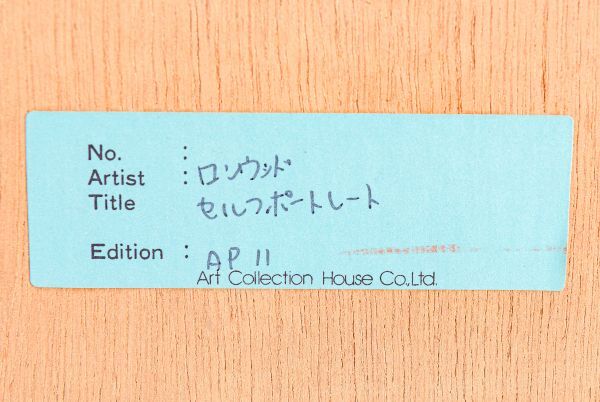 No. :
Artist : ロンウッド
Title セルフ.ポートレート
Edition : AP 11
Art Collection House Co.,Ltd.